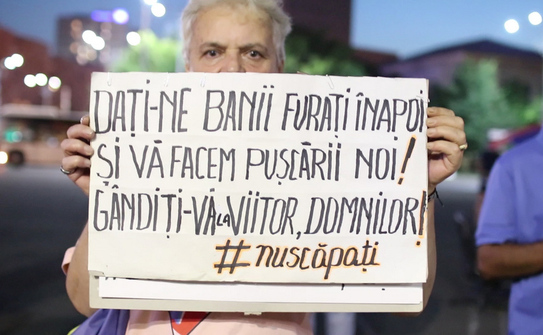 DAȚI-NE BANII FURAȚI ÎNAPOI
ȘI VĂ FACEM PUȘCĂRII NOI!
GÂNDIȚI-VĂ LA VIITOR, DOMNILOR!
#nuscăpați